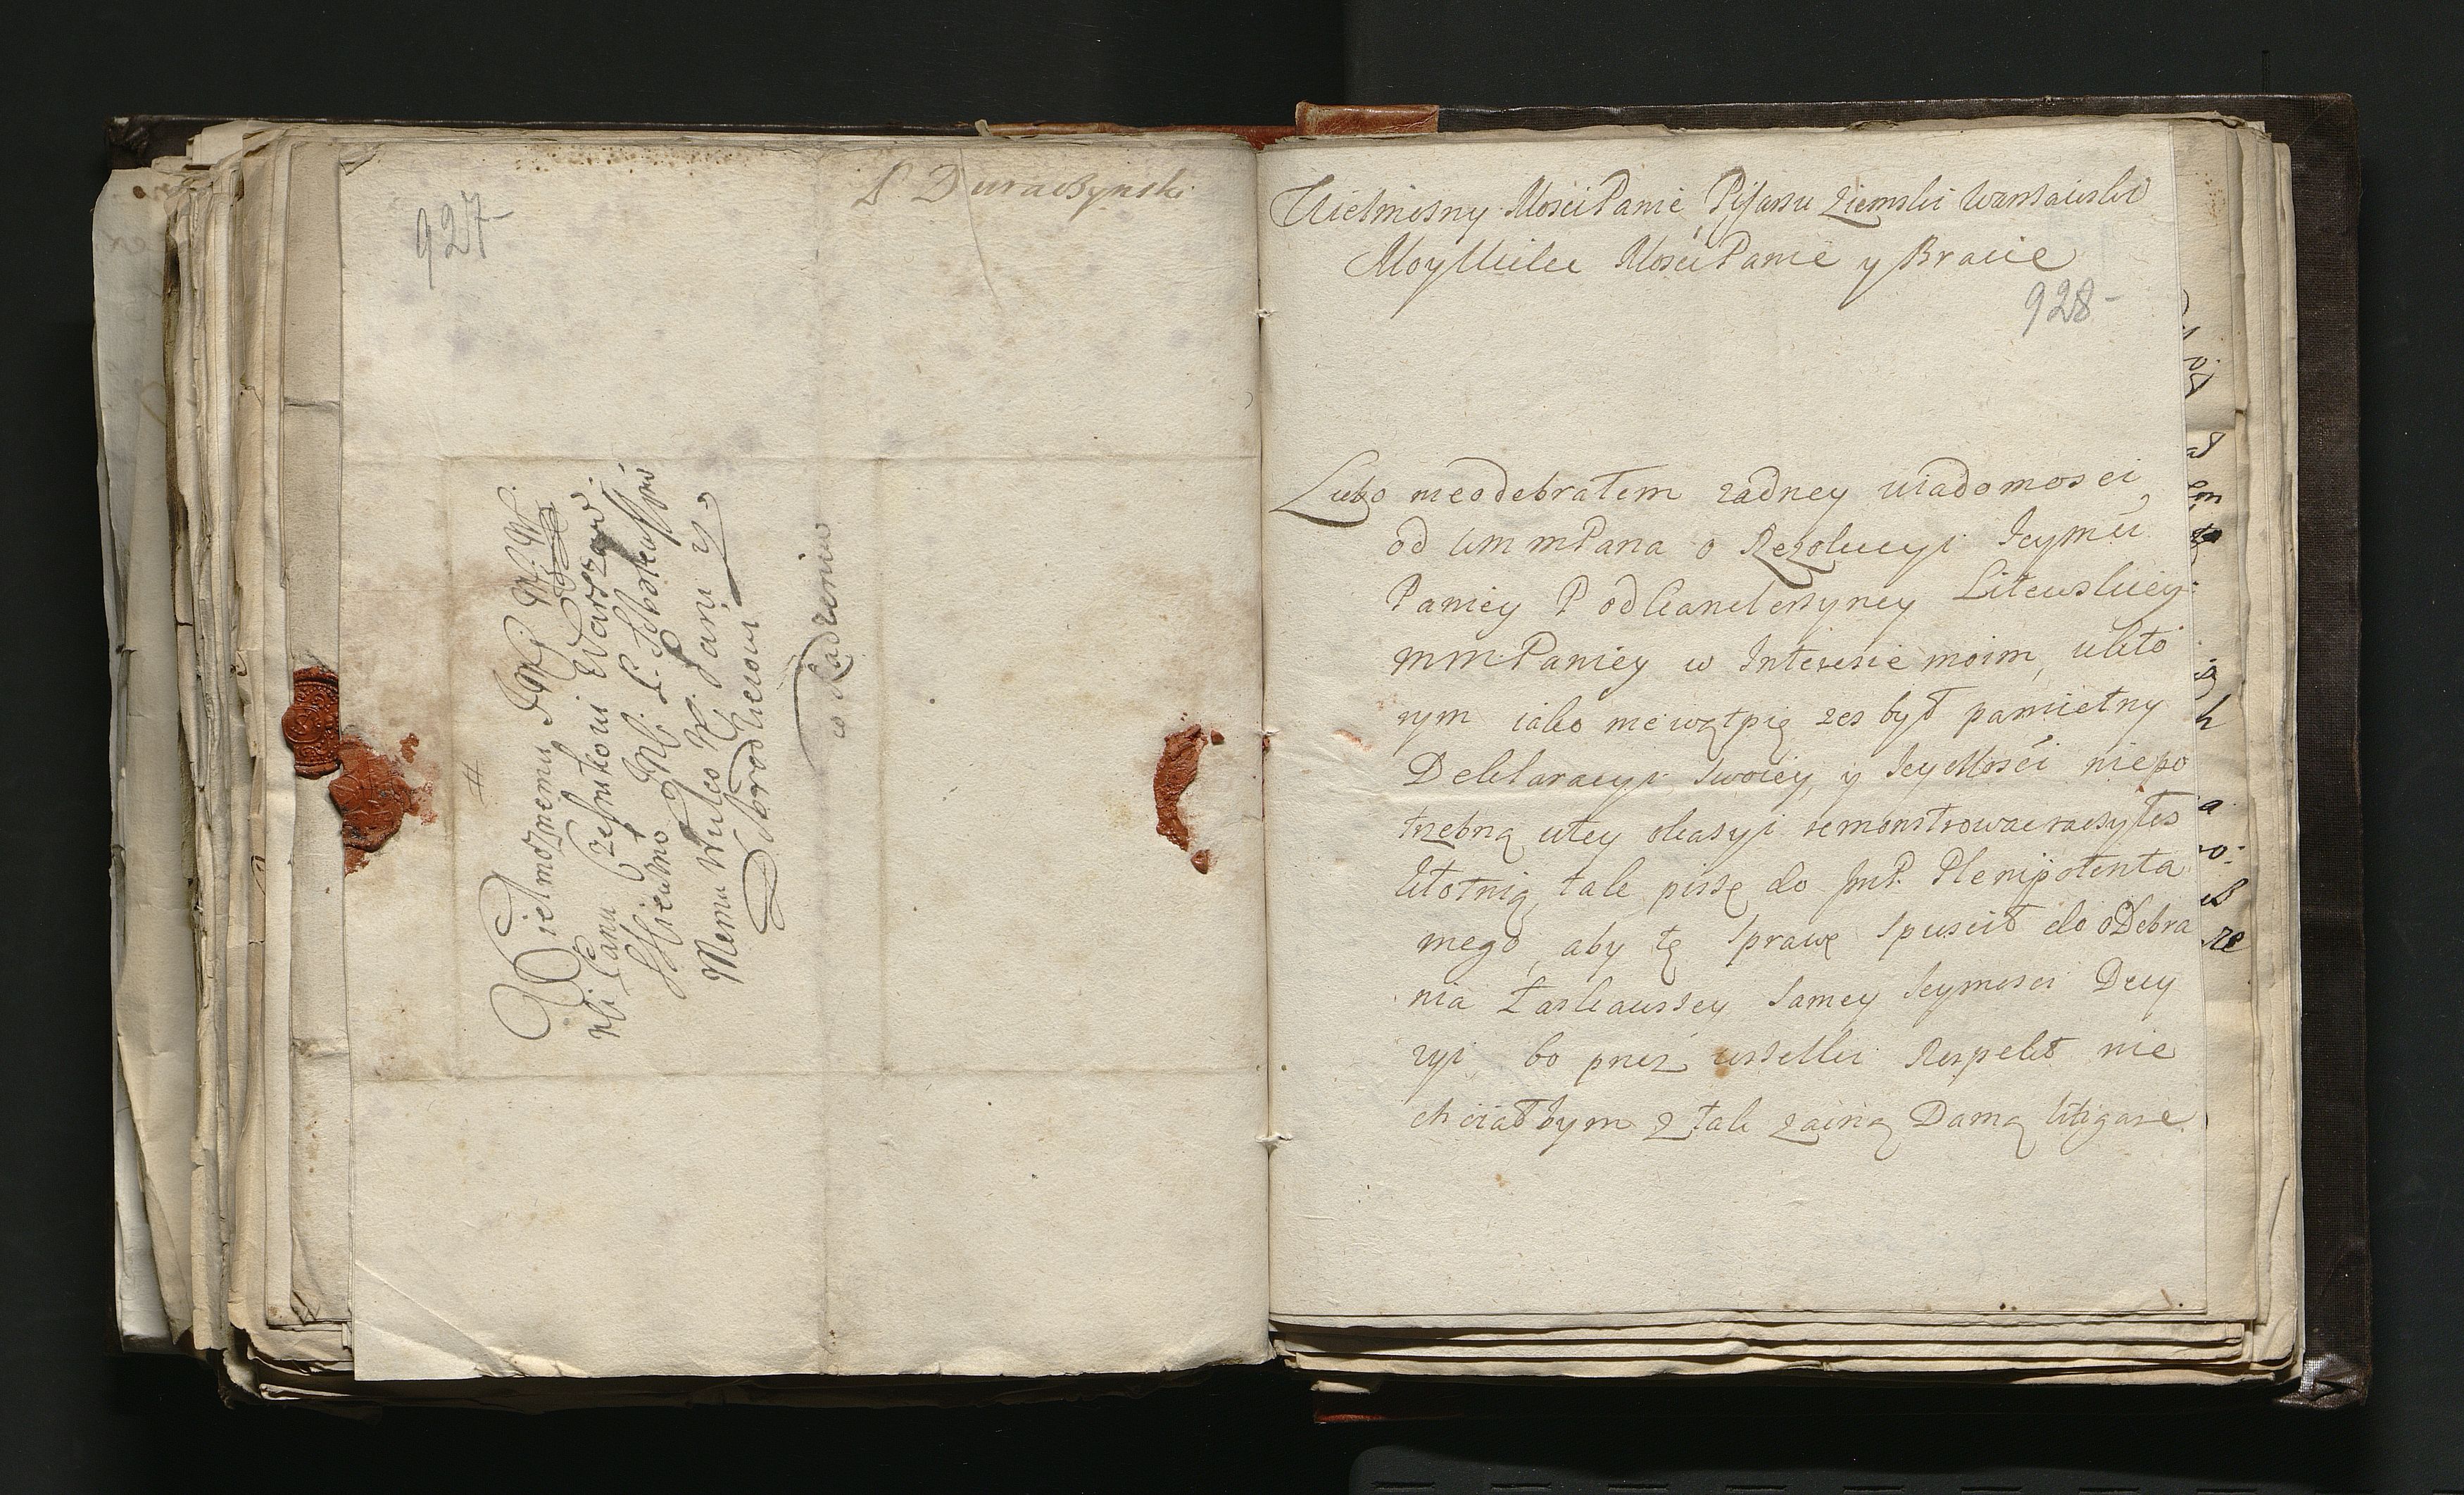 927
P Duraczynski
Wielmoznemu JMCi M. W.
Panu Czesnikowi Warszaw-
Memu Wielce M. Panu y
Dobrodzieiowi
w Radzeniu
Wielmozny Mosci Panie Pisarzu Ziemski Warszawski
Moy Wielce Mosci Panie y Bracie
928
Lubo nieodebrałem zadney wiadomosci
od Wm mPana o Rezolucyi Jeymci
Paniey Podkanclerzyney Litewskiey
mm Paniey w Interesie moim, wkto
rym iako niewątpię zes był pamietny
Deklaracyi swoiey, y Jey Mości niepo
trzebną wtey okasyi remonstrowac raczyłes
kłotnią, tak piszę do JmP. Plenipotenta
mego, aby tę sprawę spuscił do oDebra
nia Łaskawszey samey Jeymosci Decy
zyi, bo przez wszelki Respekt nie
chciałbym z tak zacną Damą litigare